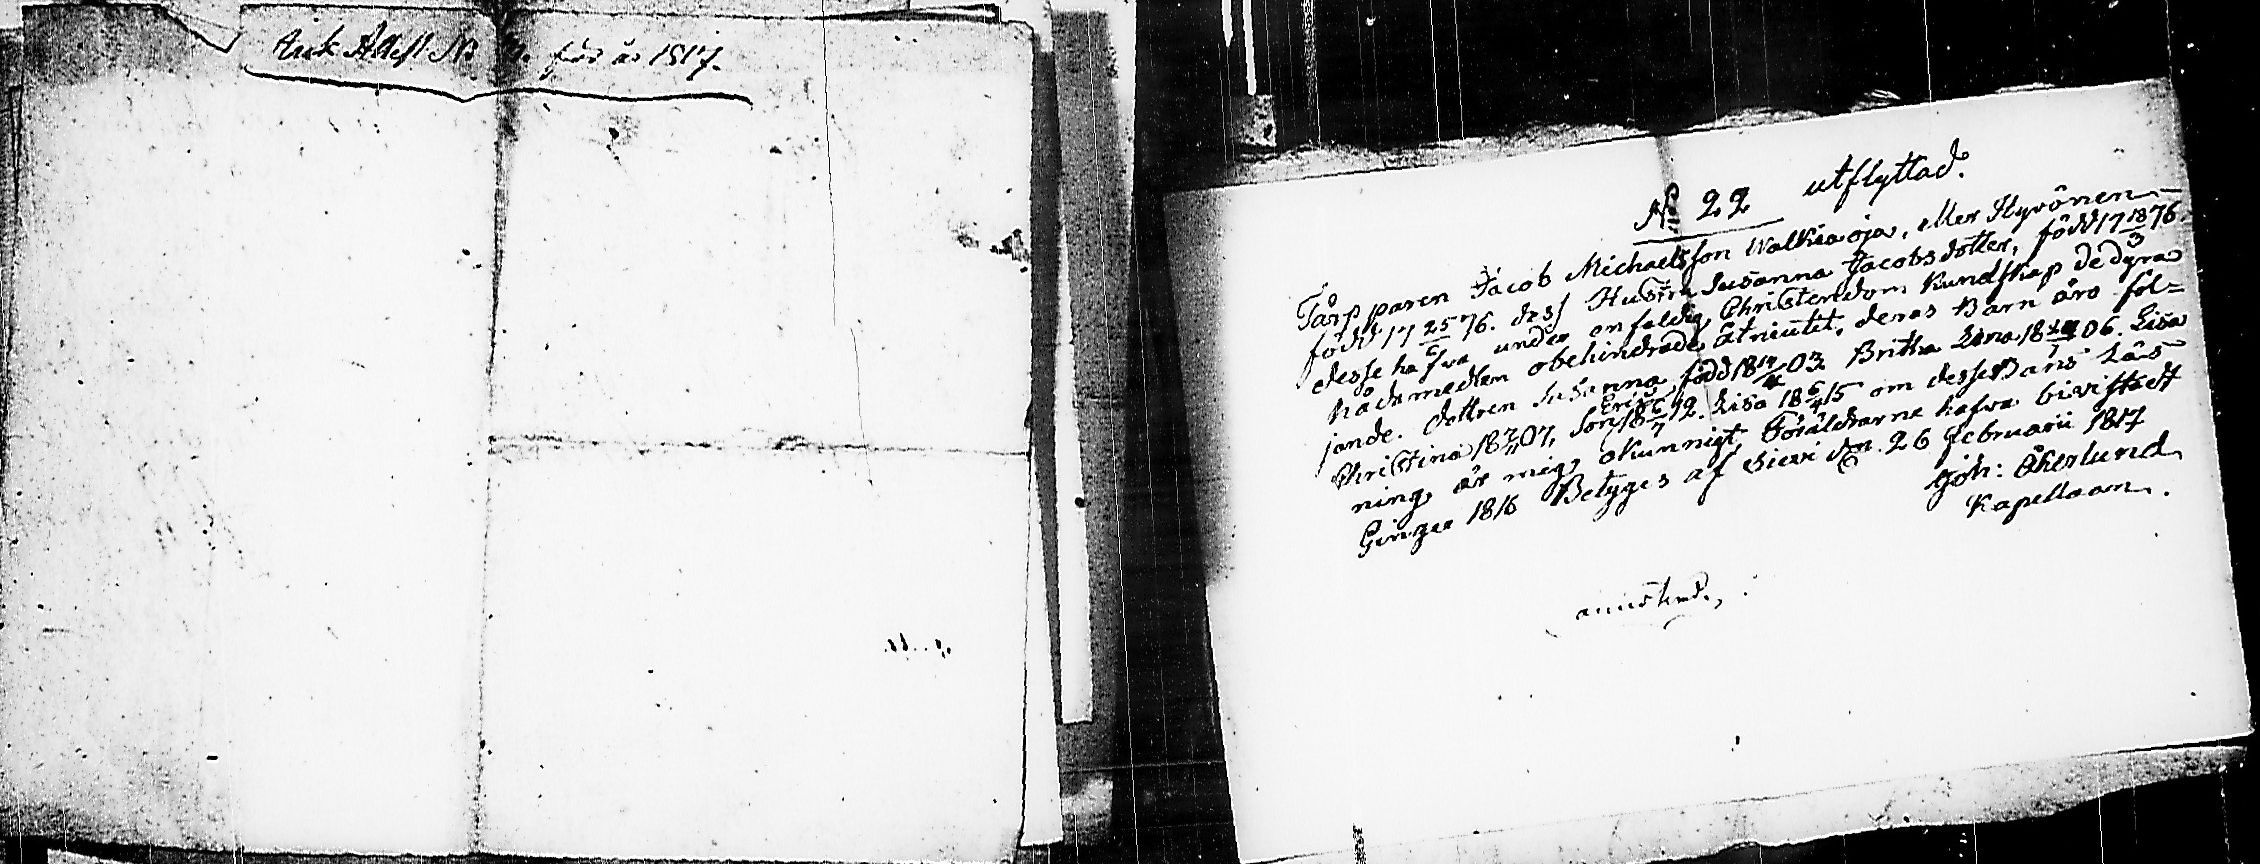 Attest No 9. för år 1817.
No 22 utflyttad.
Torpparen Jacob Michaelsson Walkiaoja, eller Hyvönen
född 17 25/6 76. dess Hustru Susanna Jacobsdotter, född 17 18/3 76
desse hafva under enfaldig Christendoms Kundskap de dyra
nådemedlen obehindrade åtniutit, deras Barn äro föl=
jande. dottren Susanna född 18 14/4 03 Britha Lena 18 06. Lisa
Christina 18 7/11 07, Son Eric 18 6/7 12. Lisa 18 6/4 15 om desse Barns Läs
ning är mig okunnigt, Föräldrarne hafva bivistadt
1816 Betyges af Sievi den 26 Februarii 1817
Joh: Åkerlund
Kapellaan.